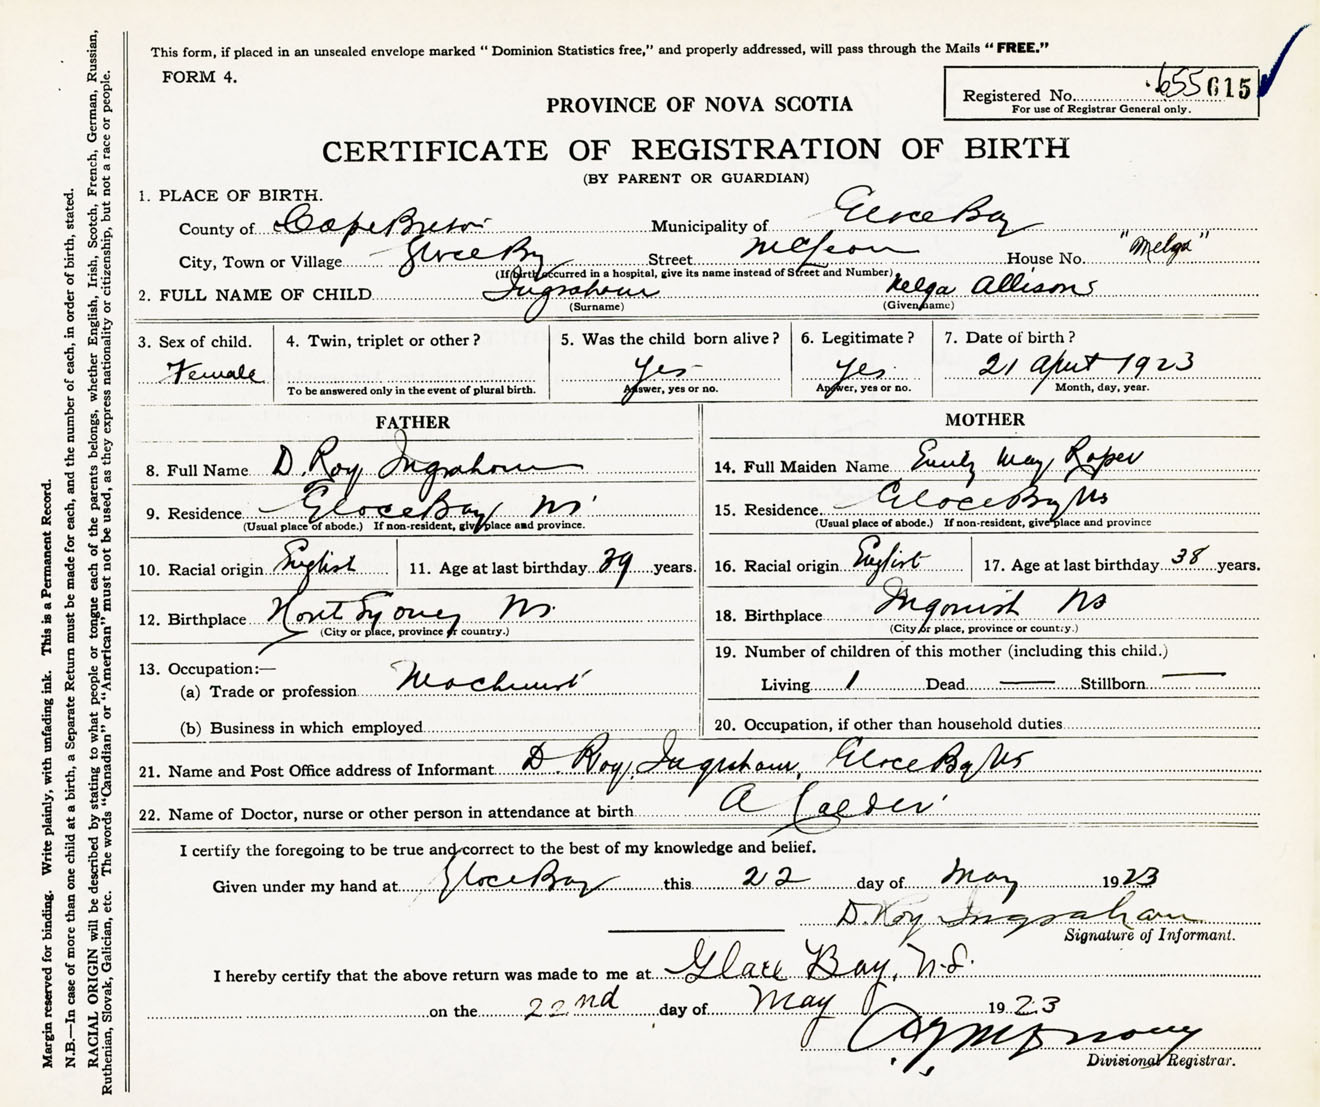 This form, if placed in an unsealed envelope marked " Dominion Statistics free," and properly addressed, will pass through the Mails "FREE."
FORM 4.
Registered No. 655 615
For use of Registrar General only.
PROVINCE OF NOVA SCOTIA
CERTIFICATE OF REGISTRATION OF BIRTH
(BY PARENT OR GUARDIAN)
1. PLACE OF BIRTH.
County of Cape Breton Municipality of Glace Bay
City, Town or Village Glace Bay Street McLean House No. "Melga"
(If birth occurred in a hospital, give its name instead of Street and Number)
2. FULL NAME OF CHILD Ingraham Allison
(Surname) (Given name)
3. Sex of child. 4. Twin, triplet or other? 5. Was the child born alive? 6. Legitimate? 7. Date of birth?
Female Yes Yes 21 April 1923
To be answered only in the event of plural birth. Answer, yes or no. Answer, yes or no. Month, day, year.
FATHER
8. Full Name D. Roy Ingraham
9. Residence Glace Bay NS
(Usual place of abode.) If non-resident, give place and province.
10. Racial origin English 11. Age at last birthday 39 years.
12. Birthplace North Sydney NS
(City or place, province or country.)
13. Occupation:—
(a) Trade or profession Machinist
(b) Business in which employed
MOTHER
14. Full Maiden Name Emily May Roper
15. Residence Glace Bay NS
(Usual place of abode.) If non-resident, give place and province
16. Racial origin English 17. Age at last birthday 38 years.
18. Birthplace Ingonish NS
(City or place, province or country.)
19. Number of children of this mother (including this child.)
Living 1 Dead — Stillborn —
20. Occupation, if other than household duties
21. Name and Post Office address of Informant D. Roy Ingraham, Glace Bay NS
22. Name of Doctor, nurse or other person in attendance at birth A Calder
I certify the foregoing to be true and correct to the best of my knowledge and belief.
Given under my hand at Glace Bay this 22 day of May 1923
D. Roy Ingraham
Signature of Informant.
I hereby certify that the above return was made to me at Glace Bay, N.S.
on the 22nd day of May 1923
Divisional Registrar.
Margin reserved for binding. Write plainly, with unfading ink. This is a Permanent Record.
N.B.—In case of more than one child at a birth, a Separate Return must be made for each, and the number of each, in order of birth, stated.
RACIAL ORIGIN will be described by stating to what people or tongue each of the parents belongs, whether English, Irish, Scotch, French, German, Russian,
Ruthenian, Slovak, Galician, etc. The words "Canadian" or "American" must not be used, as they express nationality or citizenship, but not a race or people.